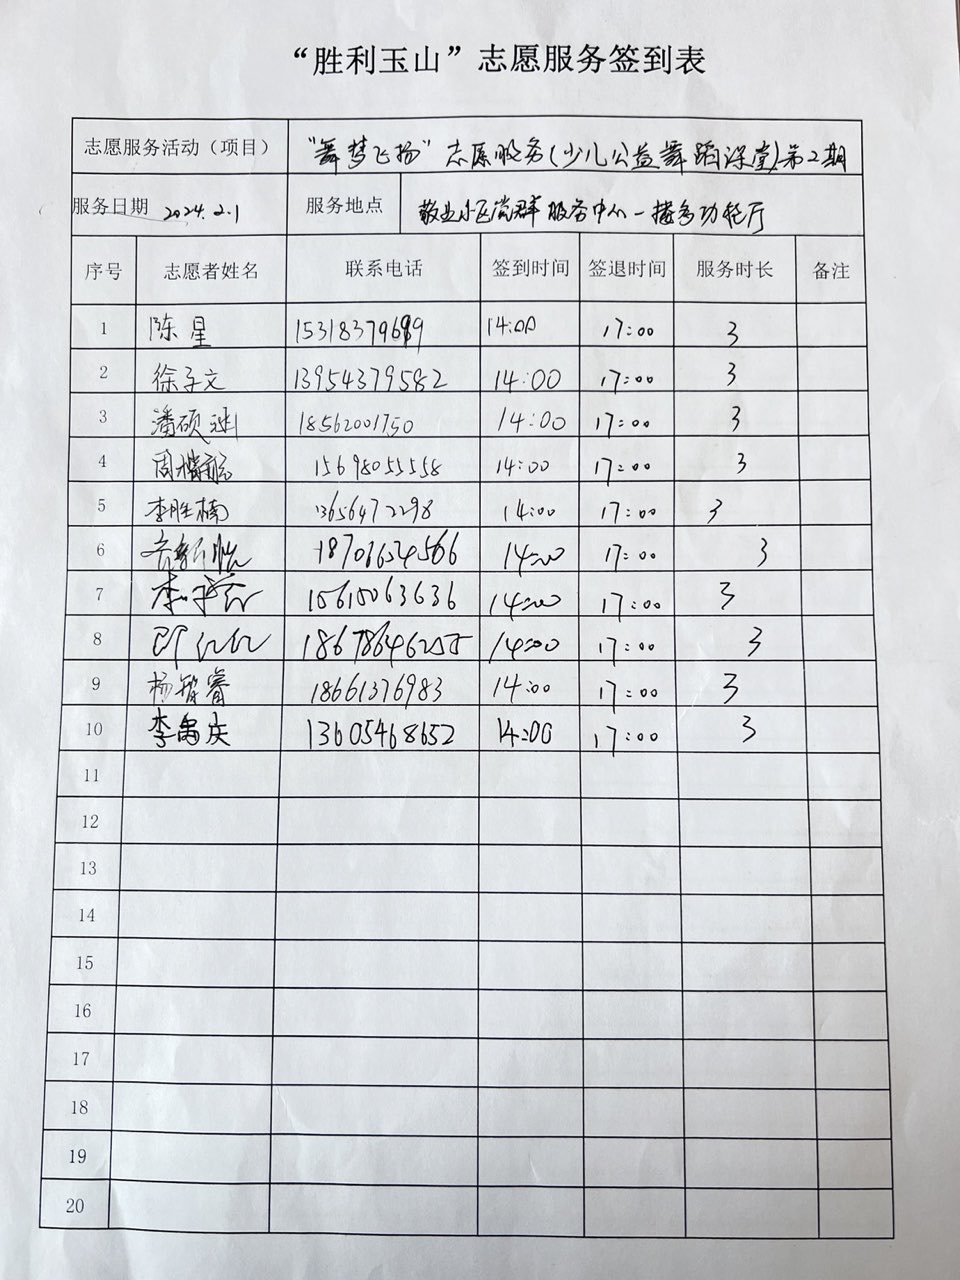 “胜利玉山”志愿服务签到表
志愿服务活动（项目） “舞梦飞扬”志愿服务(少儿公益舞蹈课堂)第2期
服务日期 2024.2.1 服务地点 敬业小区党群服务中心一楼多功能厅
序号 志愿者姓名 联系电话 签到时间 签退时间 服务时长 备注
1 陈星 15318379619 14:00 17:00 3
2 徐子文 13954379582 14:00 17:00 3
3 潘硕 18562001750 14:00 17:00 3
4 周 15698055558 14:00 17:00 3
5 李胜楠 13656472298 14:00 17:00 3
6 18706654566 14:00 17:00 3
7 李 15615063636 14:00 17:00 3
8 18678646255 14:00 17:00 3
9 杨智睿 18661376983 14:00 17:00 3
10 李禹庆 13605468652 14:00 17:00 3
11
12
13
14
15
16
17
18
19
20